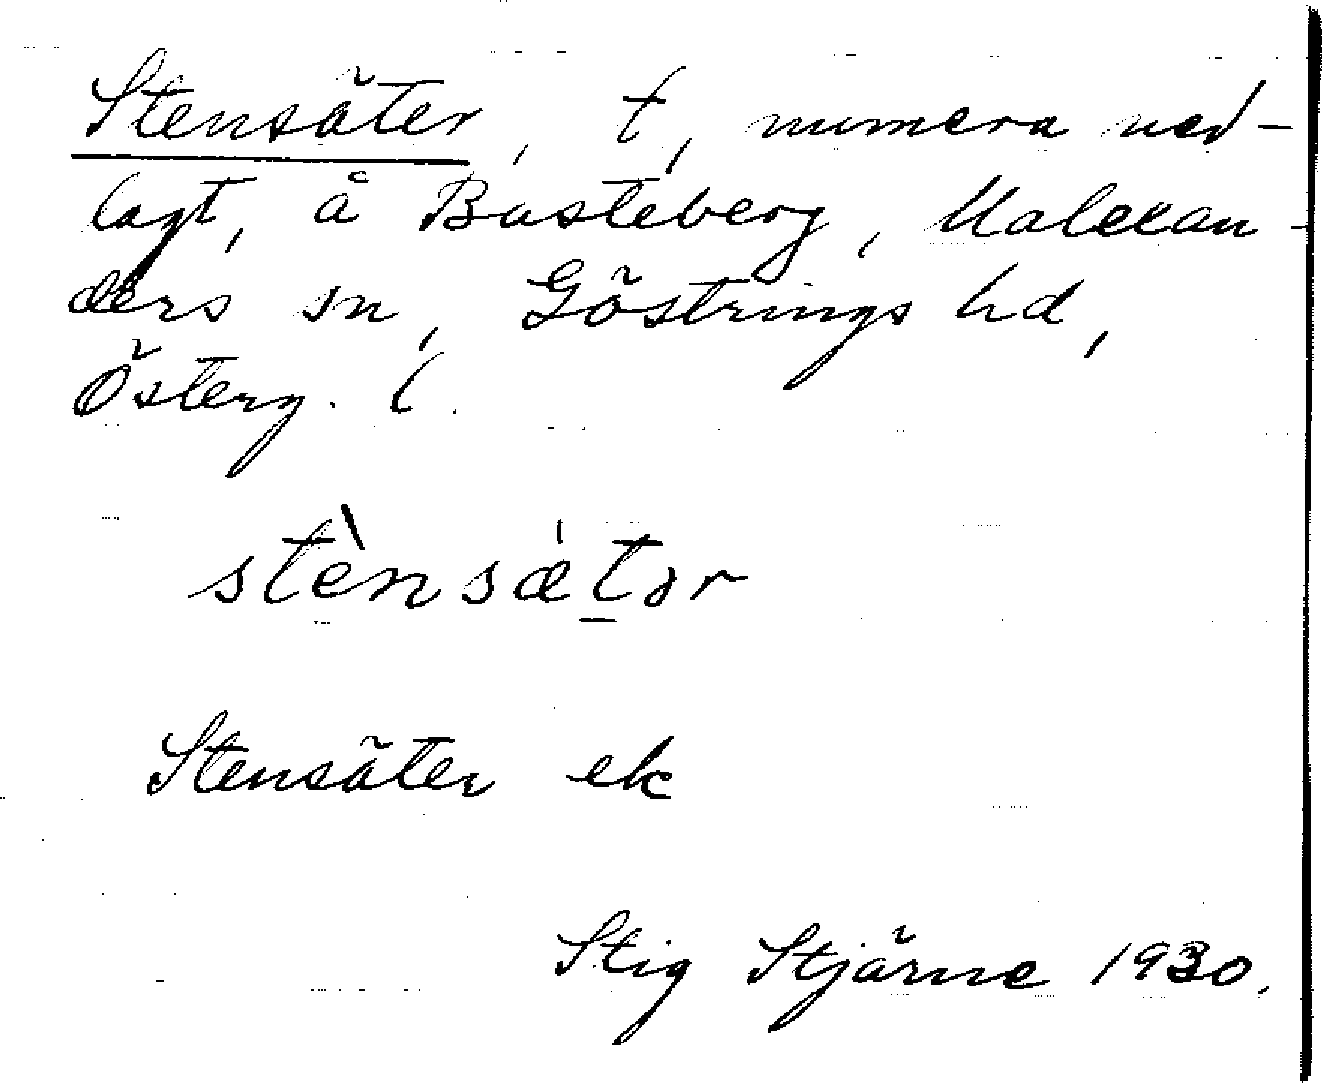 Stensäter, t, numera ned-
lagt, å Basteberg, Malexan-
ders sn, Göstrings hd,
Österg. l.
stènsæ̀tər
Stensäter ek
Stig Stjärne 1930.